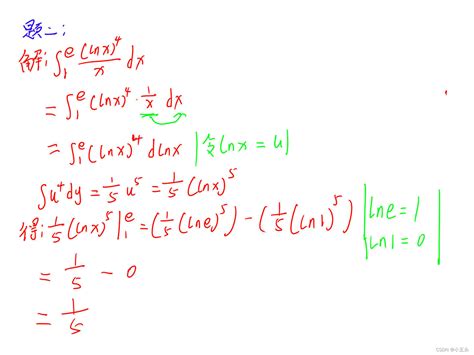 题二:
解: ∫₁ᵉ (lnx)⁴/x dx
= ∫₁ᵉ (lnx)⁴ · 1/x dx
= ∫₁ᵉ (lnx)⁴ dlnx |令lnx = u|
∫u⁴dy = 1/5 u⁵ = 1/5 (lnx)⁵
得: 1/5 (lnx)⁵ |₁ᵉ = (1/5 (lne)⁵) - (1/5 (ln1)⁵) | lne = 1 |
| ln1 = 0 |
= 1/5 - 0
= 1/5